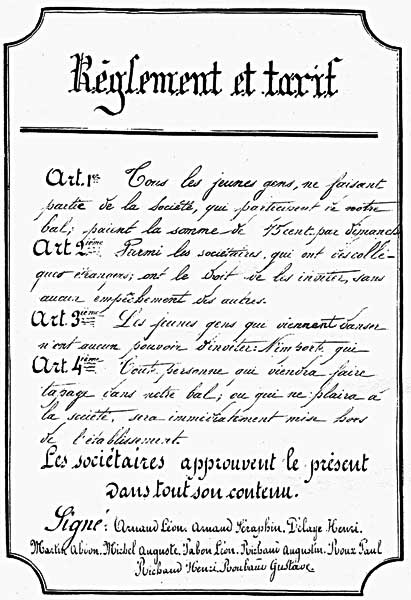 Règlement et tarif
Art. 1er Tous les jeunes gens, ne faisant
partie de la Société, qui participent à notre
bal; paient la somme de 15 cent. par dimanche
Art. 2ième Parmi les sociétaires, qui ont des collè-
gues étrangers; ont le droit de les inviter, sans
aucun empêchement des autres.
Art. 3ième Les jeunes gens qui viennent danser
n'ont aucun pouvoir d'inviter N'importe qui
Art. 4ième Toute personne qui viendra faire
tapage dans notre bal; ou qui ne plaira à
la société, sera immédiatement mise hors
de l'établissement.
Les sociétaires approuvent le présent
dans tout son contenu.
Signé: Arnaud Léon. Arnaud Séraphin. Délaye Henri.
Martin Michel Auguste. Pabon Léon. Richaud Augustin. Roux Paul
Richaud Henri. Roubaud Gustave.